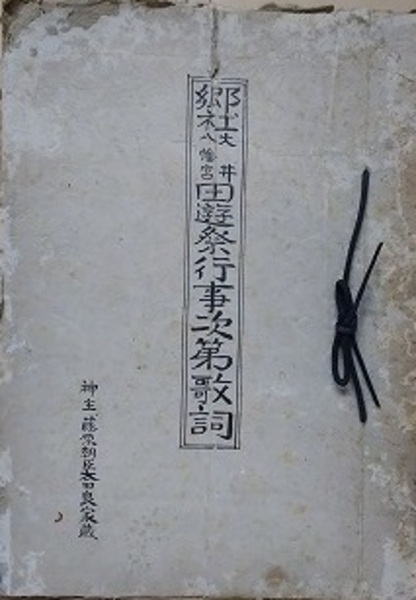 郷社大井八幡宮田遊祭行事次第歌詞
神主藤原朝臣太田良八家蔵